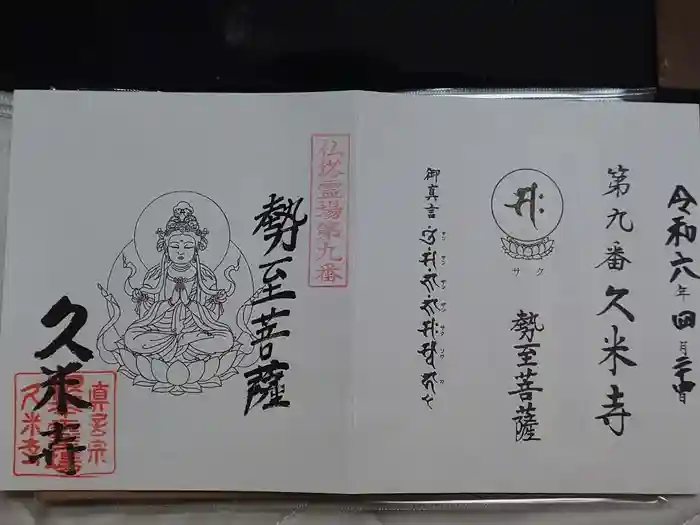 令和六年四月二十四日
第九番久米寺
サク
勢至菩薩
御真言
仏塔霊場第九番
勢至菩薩
久米寺
真言宗
久米寺